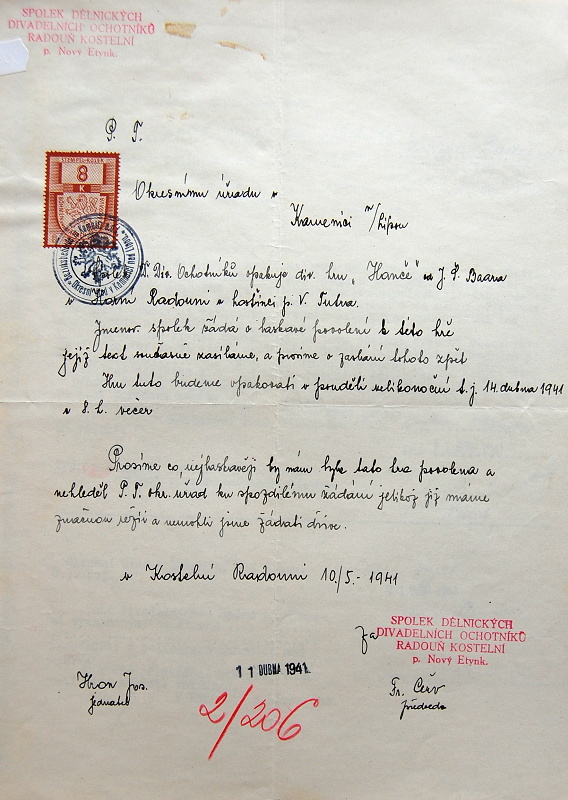 SPOLEK DĚLNICKÝCH
DIVADELNÍCH OCHOTNÍKŮ
RADOUŇ KOSTELNÍ
p. Nový Etynk.
P. T.
8
K
Okresnímu úřadu v
Kamenici n/Lipou
Děl. Div. Ochotníků opakuje div. hru „Hanče" od J. Š. Baara
v Horní Radouni v hostinci p. V. Tutra.
Jmenov. spolek žádá o laskavé povolení k této hře
jejíž text současně zasíláme, a prosíme o zaslání tohoto zpět
Hru tuto budeme opakovati v pondělí velikonoční t. j. 14. dubna 1941
v 8. h. večer
Prosíme co nejlaskavěji by nám byla tato hra povolena a
nehleděl P. T. okr. úřad ku spozdilému žádání jelikož již máme
značnou režii a nemohli jsme žádati dříve.
v Kostelní Radouni 10./5.- 1941
za
SPOLEK DĚLNICKÝCH
DIVADELNÍCH OCHOTNÍKŮ
RADOUŇ KOSTELNÍ
p. Nový Etynk.
11 DUBNA 1941
Hron Jos.
jednatel
2/206
Fr. Červ
předseda